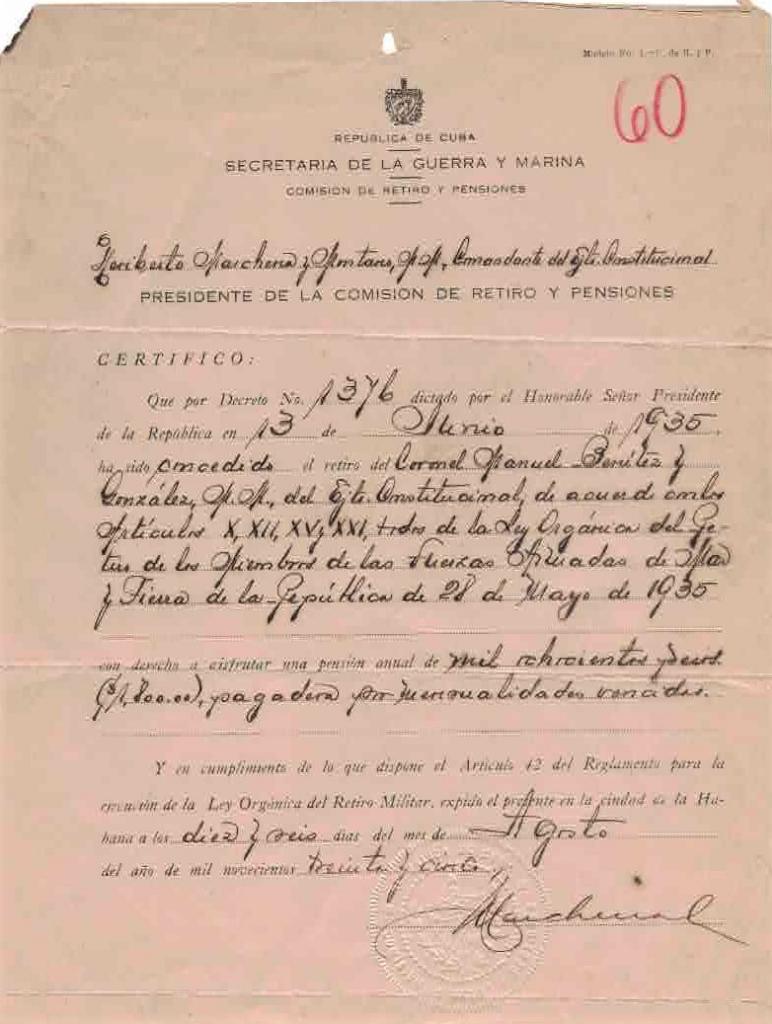 Modelo No. 1.— de R. y P.
60
REPUBLICA DE CUBA
SECRETARIA DE LA GUERRA Y MARINA
COMISION DE RETIRO Y PENSIONES
Heriberto Marchena y Montano, M.M., Comandante del Ejto. Constitucional
PRESIDENTE DE LA COMISION DE RETIRO Y PENSIONES
CERTIFICO:
Que por Decreto No. 1376 dictado por el Honorable Señor Presidente
de la República en 13 de Junio de 1935,
ha sido concedido el retiro del Coronel Manuel Benítez y
González, M.M., del Ejto. Constitucional, de acuerdo con los
Artículos X, XII, XV y XXI, todos de la Ley Orgánica del Re-
tiro de los Miembros de las Fuerzas Armadas de Mar
y Tierra de la República de 28 de Mayo de 1935
con derecho a disfrutar una pensión anual de mil ochocientos pesos.
($1,800.00), pagadera por mensualidades vencidas.
Y en cumplimiento de lo que dispone el Artículo 42 del Reglamento para la
ejecución de la Ley Orgánica del Retiro Militar, expido el presente en la ciudad de la Ha-
bana a los diez y seis días del mes de Agosto
del año de mil novecientos treinta y cinco,